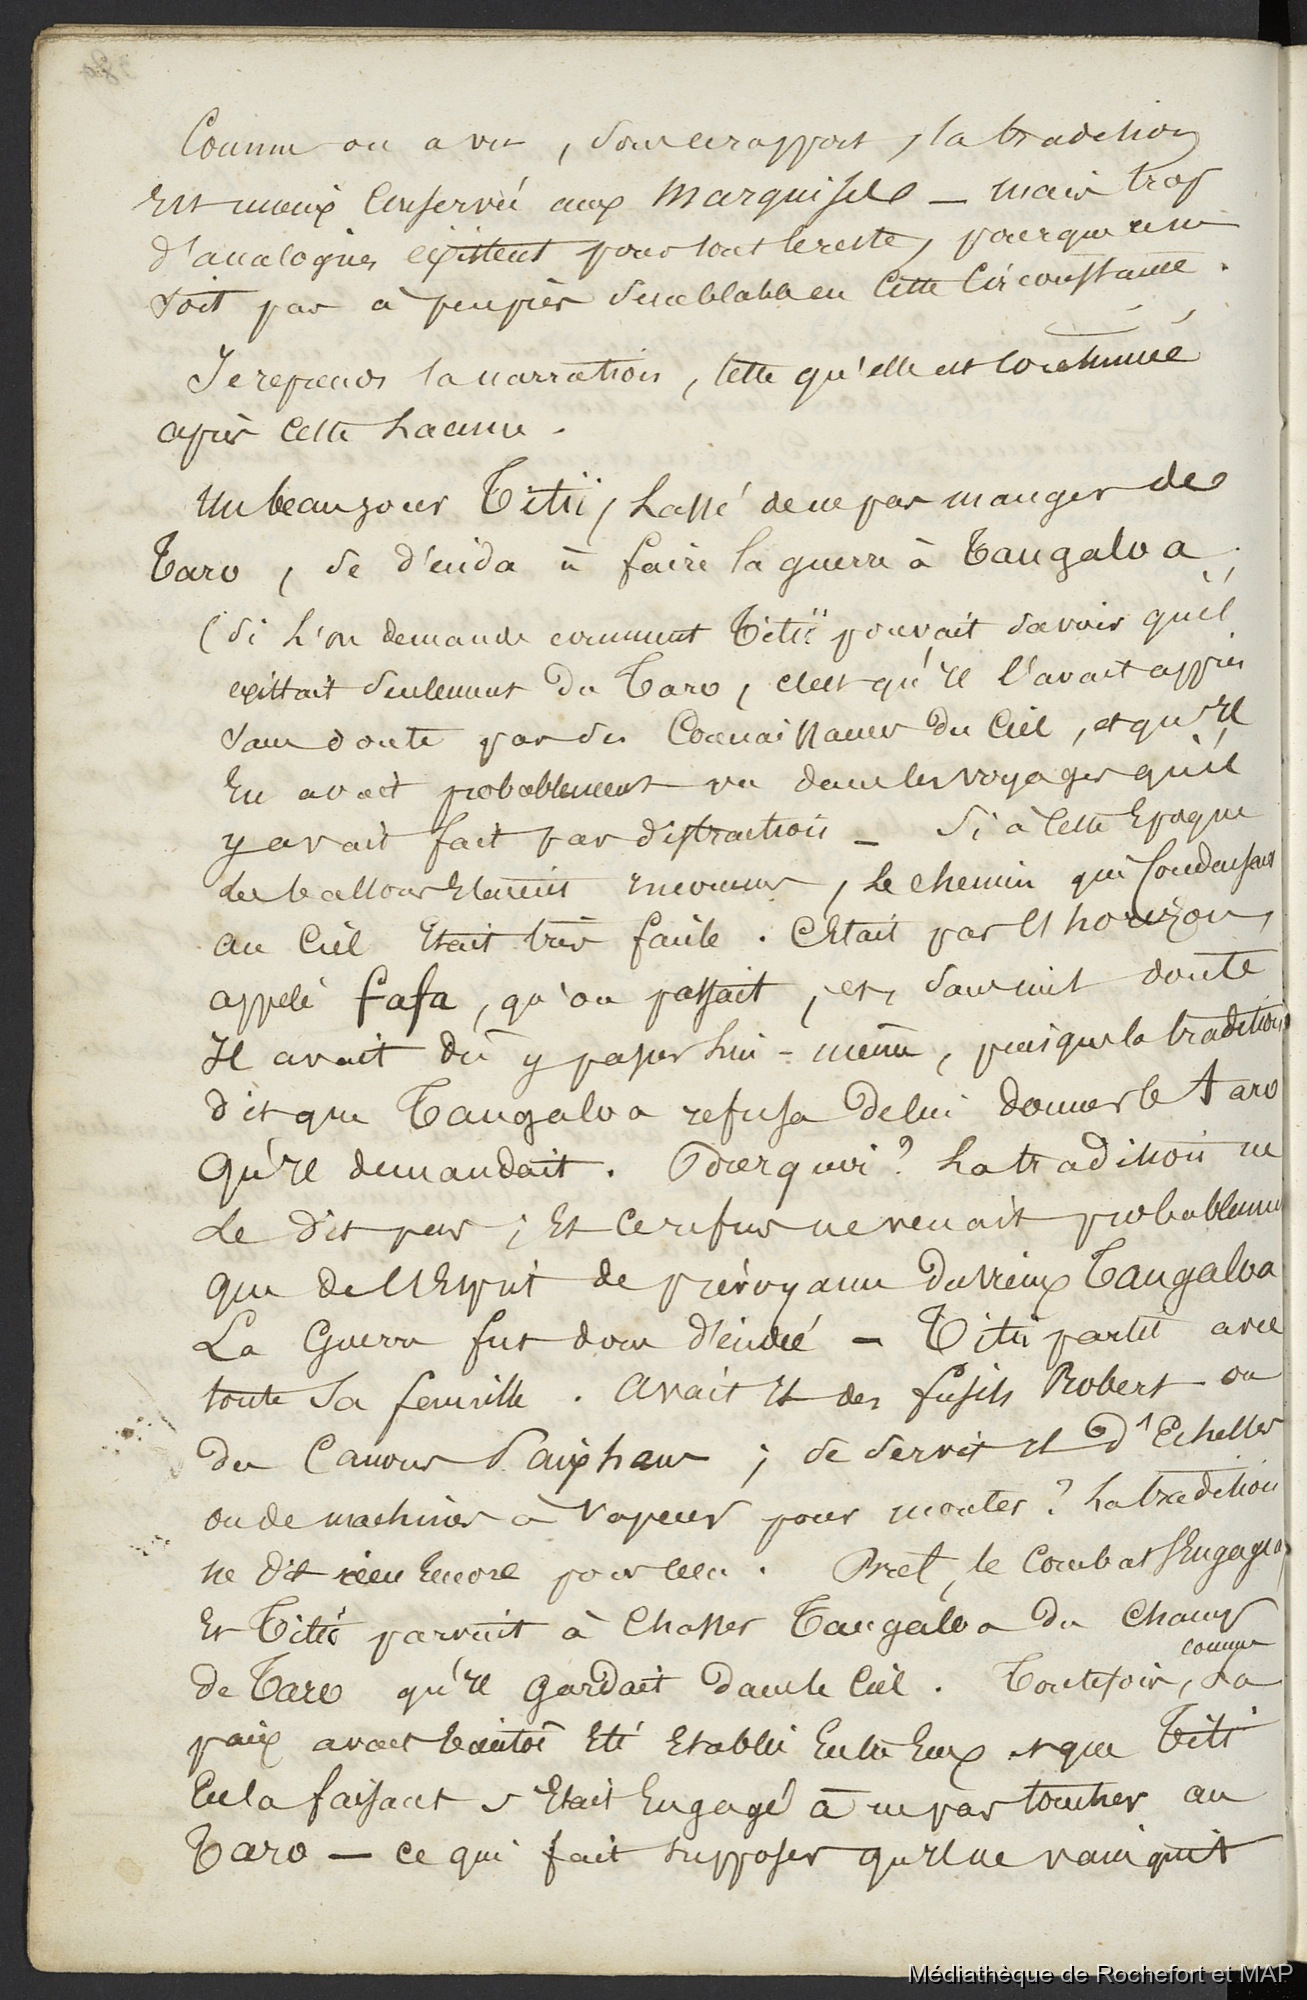 Comme on a vu, sous ce rapport, la tradition
est mieux conservée aux Marquises — mais trop
d'analogies existent pour tout le reste, pour que ce ne
soit pas à peu près semblable en cette circonstance.
Je reprends la narration, telle qu'elle est continuée
après cette Lacune.
Un beau jour Titii, Lassé de ne pas manger de
Taro, se décida à faire la guerre à Tangaloa.
(Si L'on demande comment Titii pouvait savoir qu'il
existait seulement du Taro, c'est qu'il l'avait appris
sans doute par des Connaissances du Ciel, et qu'il
En avait probablement vu dans les voyages qu'il
y avait fait par distraction — Si à cette Epoque
les ballons Etaient inconnus, Le chemin qui Conduisait
au Ciel Etait très facile. C'Etait par l'horizon,
appelé fafa, qu'on passait, et, sans nul doute
Il avait dû y passer Lui-même, puisque la tradition
dit que Tangaloa refusa de lui donner le taro
Qu'il demandait. Pourquoi? La tradition ne
Le dit pas; Et ce refus ne venait probablement
que de l'Esprit de prévoyance du vieux Tangaloa
La Guerre fut donc décidée — Titii partit avec
toute Sa famille. Avait il des fusils Robert ou
des Canons Paixhans; se servit il d'Echelles
ou de machines à vapeur pour monter? La tradition
ne dit rien Encore pour cela. Bref, le Combat s'Engagea,
Et Titii parvint à Chasser Tangaloa du Champ
de Taro qu'il gardait dans le Ciel. Toutefois, comme La
paix avait bientôt Eté Etablie Entre Eux et que Titi
En la faisant s'Etait Engagé à ne pas toucher au
Taro — ce qui fait supposer qu'il ne vainquit
Médiathèque de Rochefort et MAP